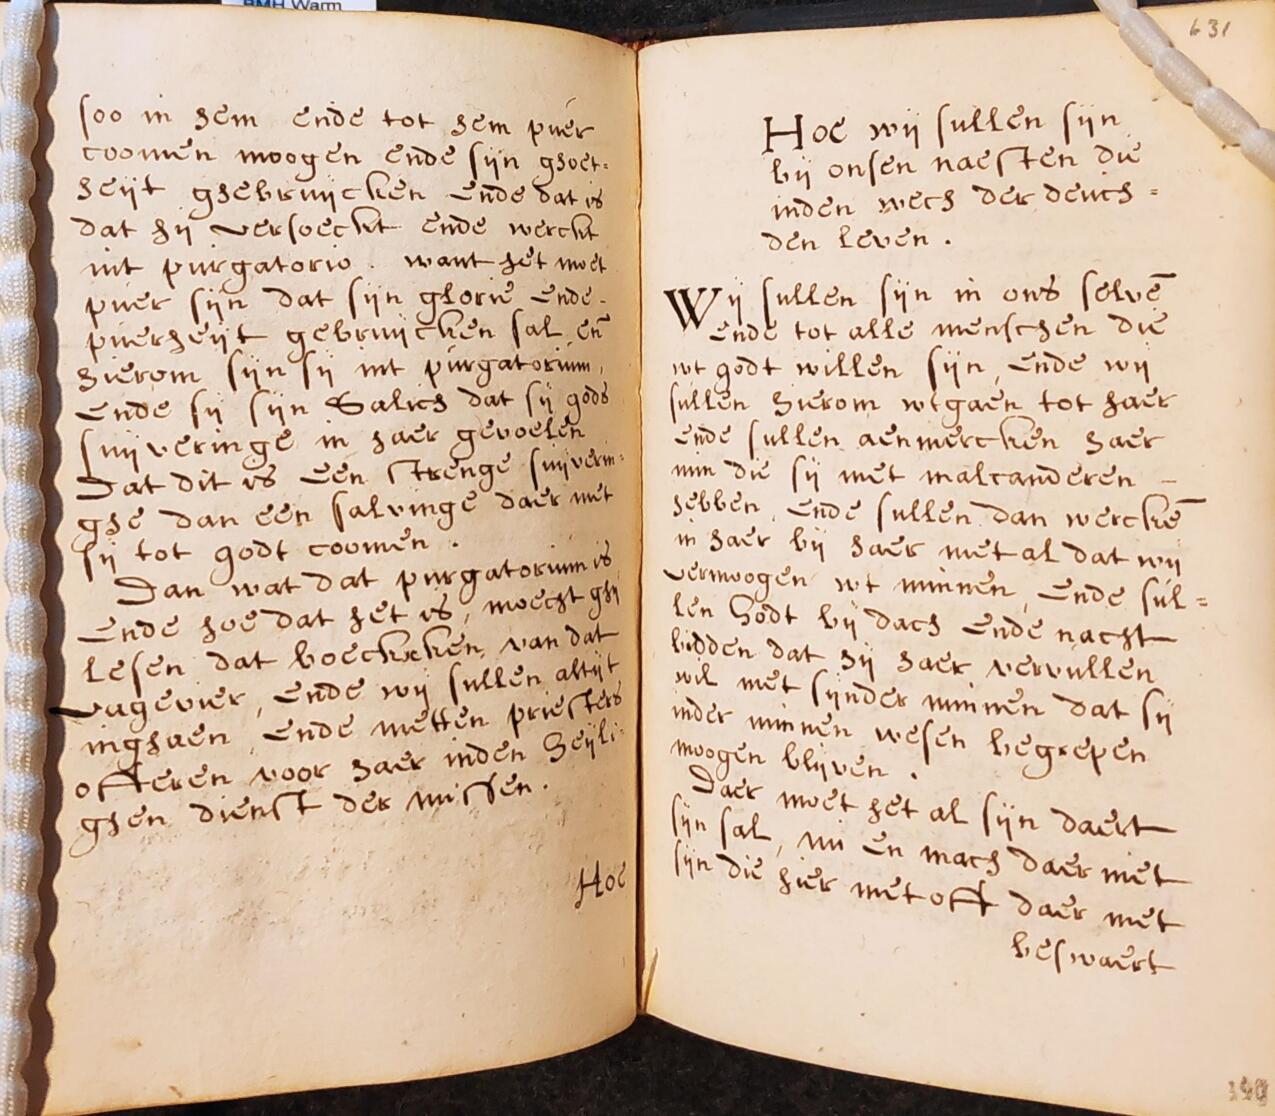 BMH Warm
soo in hem ende tot hem puer
coomen moogen ende sijn ghoet-
heijt ghebruijcken ende dat is
dat hij versoeckt ende werckt
int purgatorio. want het moet
puer sijn dat sijn glorie ende-
puerheijt gebruijcken sal, en̄
hierom sijn sij int purgatorium,
ende sij sijn Salich dat sij gods
suijveringe in haer gevoelen
Dat dit is een strenge suijverin-
ghe dan een salvinge daer met
sij tot godt coomen.
Dan wat dat purgatorium is
ende hoe dat het is, moecht ghij
lesen dat boeckxken, van dat
vagevier, ende wij sullen altijt
inghaen, ende metten priesters
offeren voor haer inden Heijli-
ghen dienst der missen.
Hoe
631
Hoe wij sullen sijn
bij onsen naesten die
inden wech der deuch-
den leven.
Wij sullen sijn in ons selvē
ende tot alle menschen die
wt godt willen sijn, ende wij
sullen hierom wtgaen tot haer
ende sullen aenmercken haer
min die sij met malcanderen -
hebben, ende sullen dan werckē
in haer bij haer met al dat wij
vermoogen wt minnen, ende sul-
len Godt bij dach ende nacht
bidden dat hij haer vervullen
wil met sijnder minnen dat sij
inder minnen wesen begrepen
moogen blijven.
Daer moet het al sijn daert
sijn sal, nu en mach daer niet
sijn die hier met oft daer met
beswaert